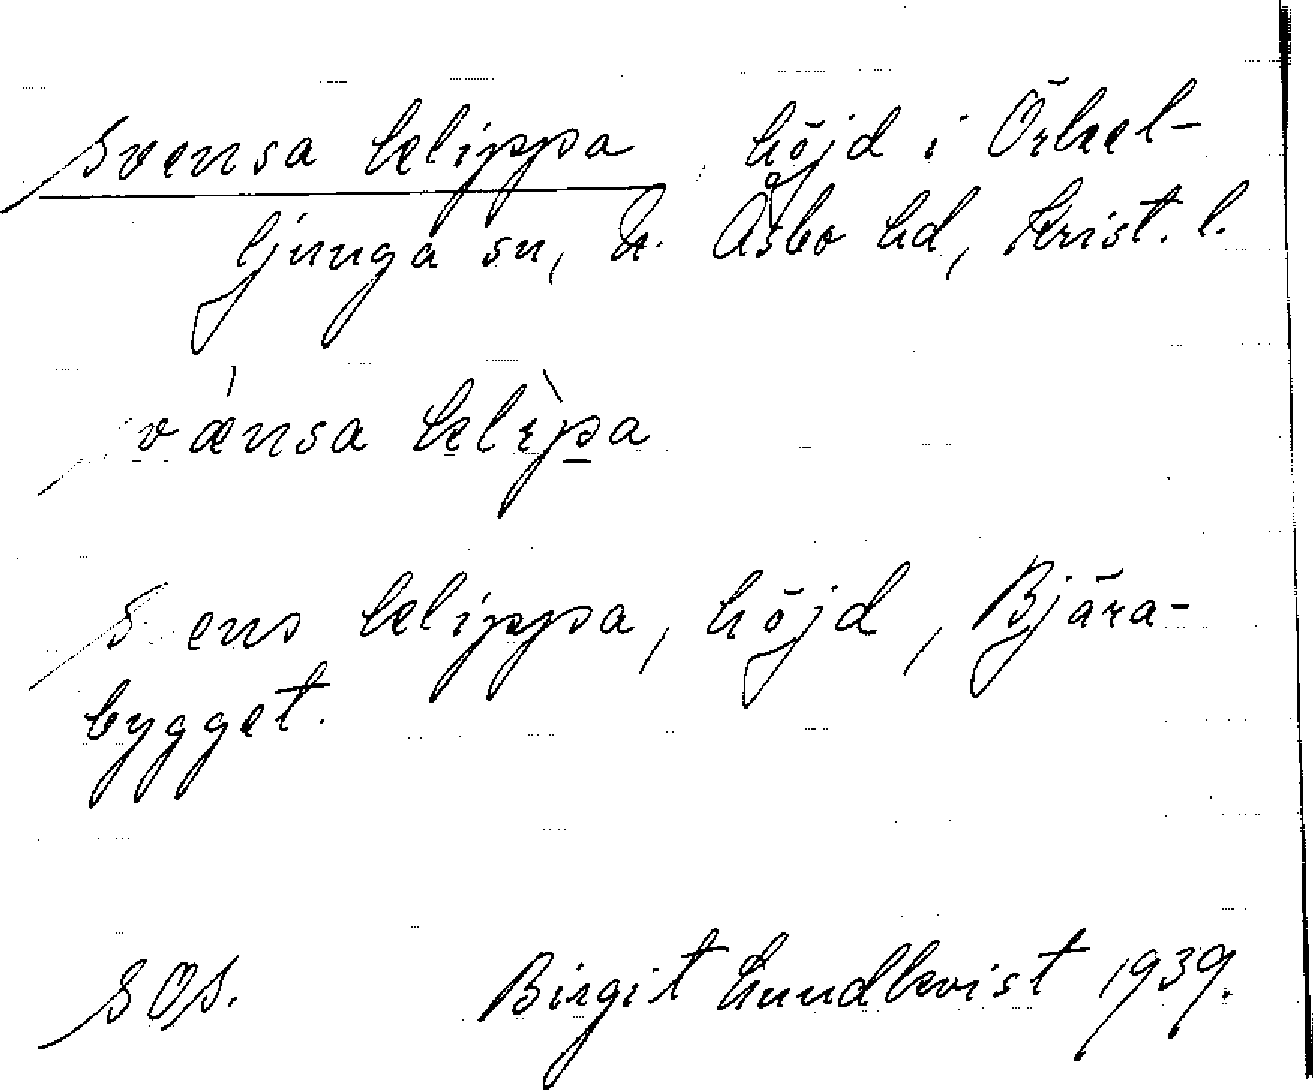 Svensa klippa, höjd i Örkel-
ljunga sn, N. Åsbo hd, Krist. l.
svænsa klepa
Svens klippa, höjd, Bjära-
bygget.
SOS. Birgit Lundkvist 1939.